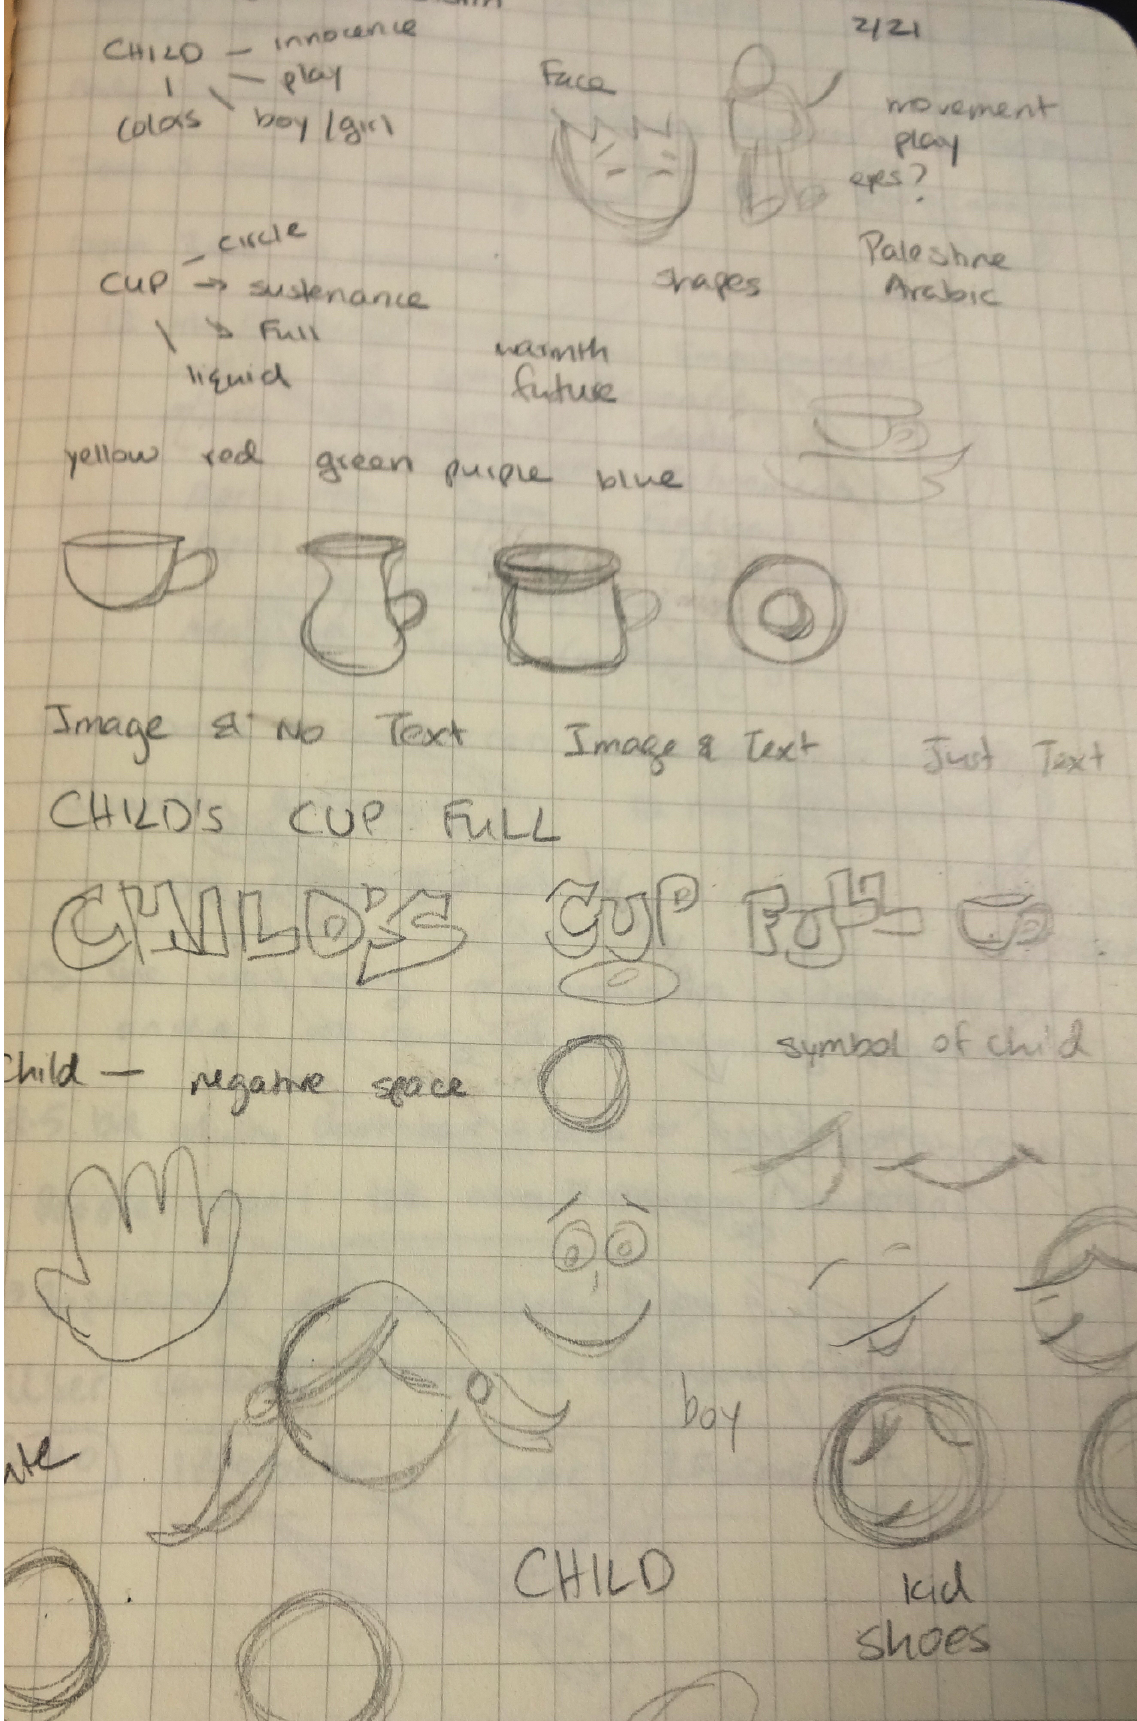 2/21
CHILD — innocence
— play
colors boy/girl
Face
movement
play
eyes?
circle
CUP → sustenance
Full
liquid
shapes
Palestine
Arabic
warmth
future
yellow red green purple blue
Image & No Text
Image & Text
Just Text
CHILD'S CUP FULL
CHILD'S CUP FULL
symbol of child
Child — negative space
boy
CHILD
kid
shoes